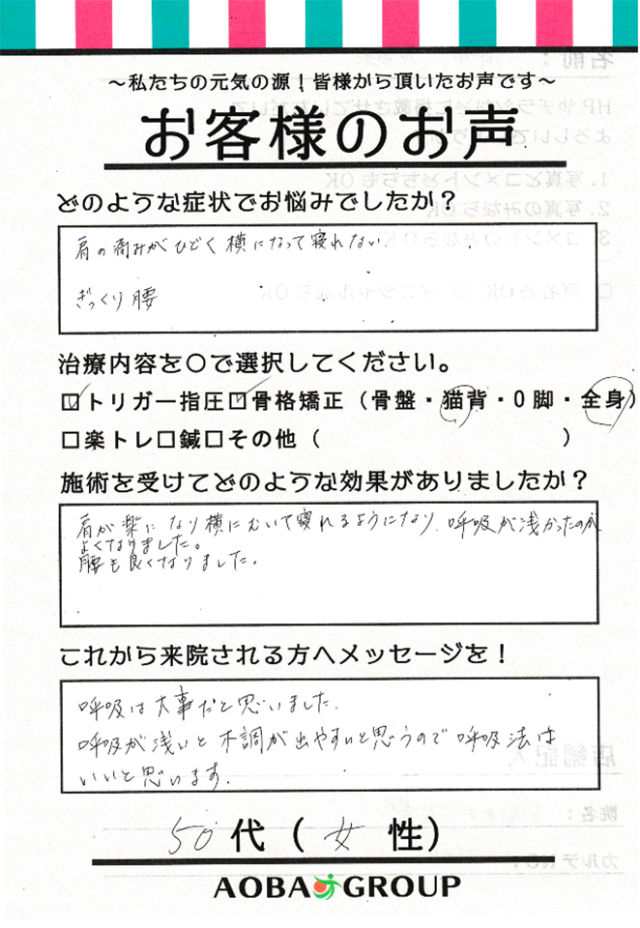 ～私たちの元気の源！皆様から頂いたお声です～
お客様のお声
どのような症状でお悩みでしたか？
肩の痛みがひどく横になって寝れない
ぎっくり腰
治療内容を〇で選択してください。
☑トリガー指圧☑骨格矯正（骨盤・猫背・O脚・全身）
□楽トレ□鍼□その他（　　　　　　　　　）
施術を受けてどのような効果がありましたか？
肩が楽になり横にむいて寝れるようになり、呼吸が浅かったのが
よくなりました。
腰も良くなりました。
これから来院される方へメッセージを！
呼吸は大事だと思いました。
呼吸が浅いと不調が出やすいと思うので呼吸法は
いいと思います。
50代（女 性）
AOBA GROUP